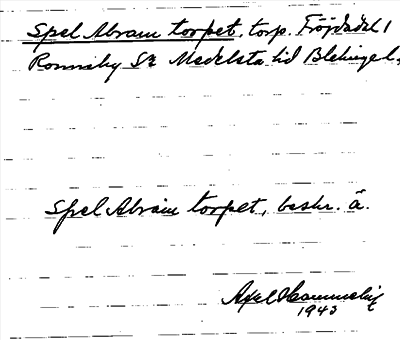 Spel Abram torpet, torp. Fröjdadal 1
Ronneby Sn Medelsta hd Blekinge l.
Spel Abram torpet, beskr. ä.
Axel
1943